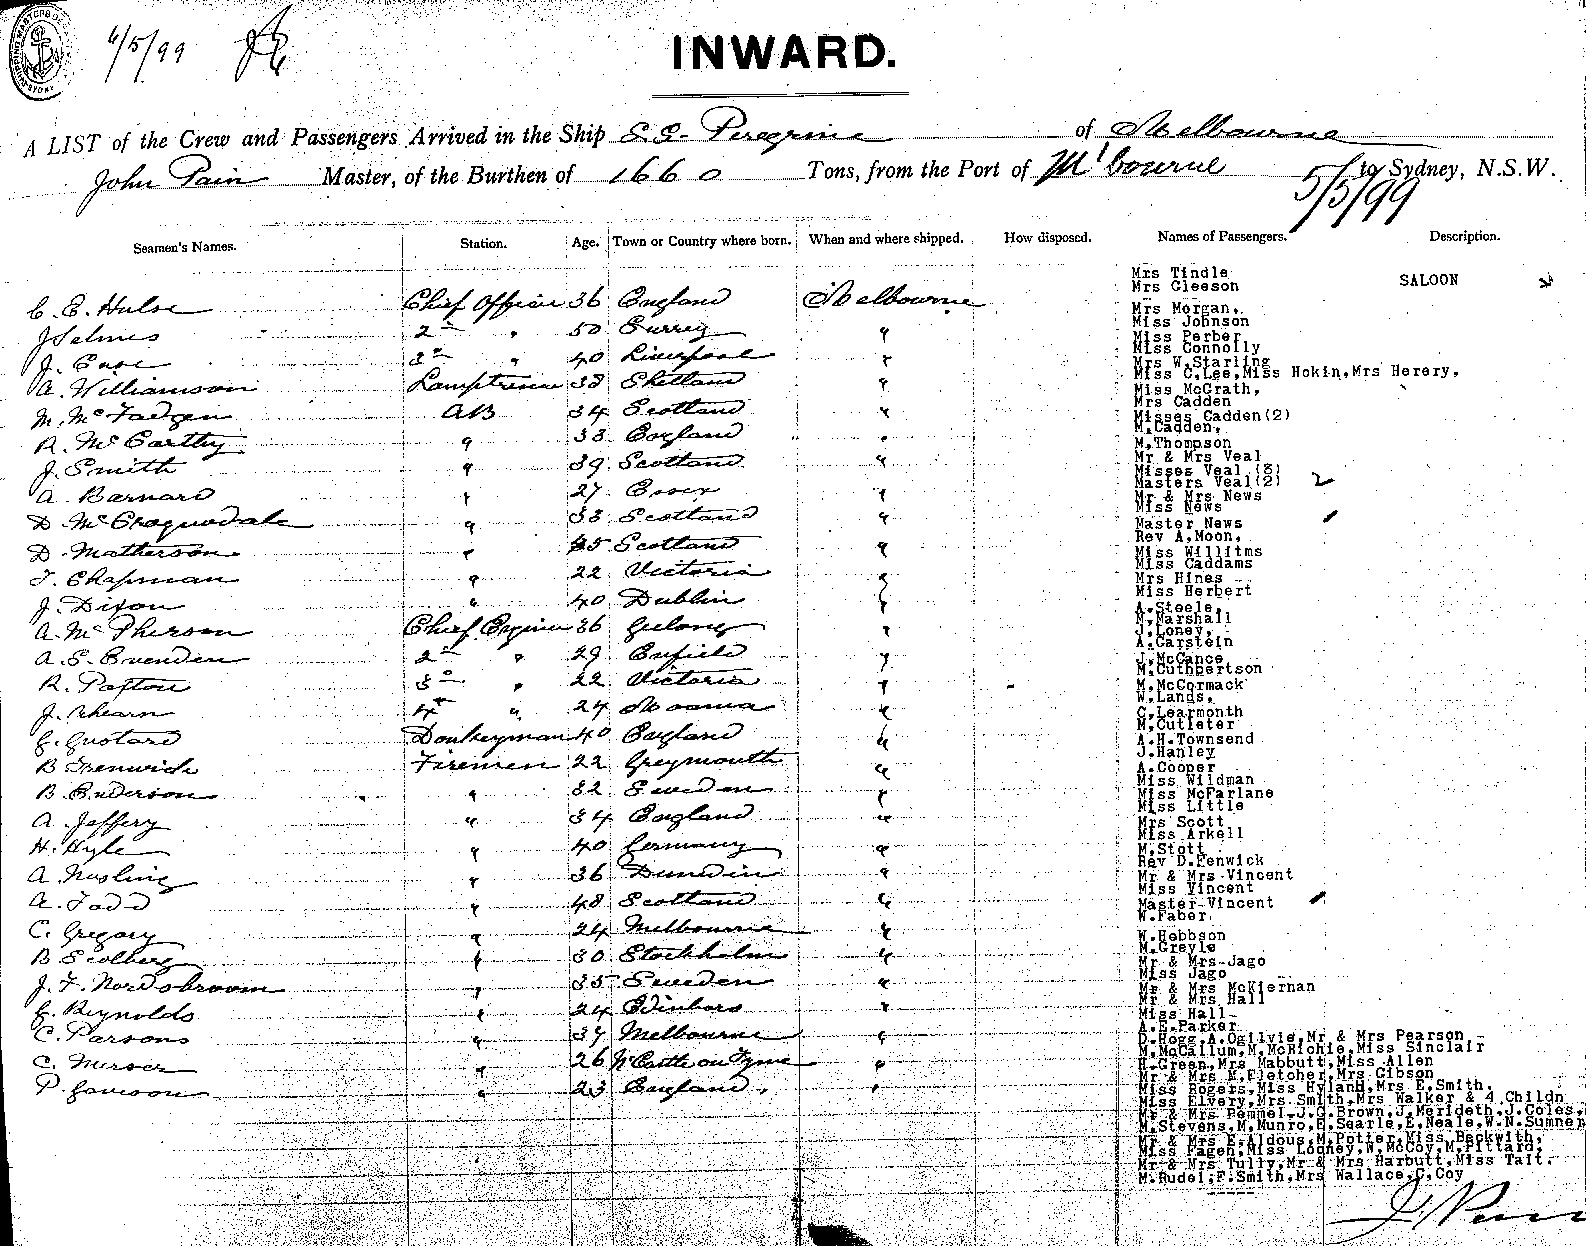 6/5/99
INWARD.
A LIST of the Crew and Passengers Arrived in the Ship S.S. Peregrine of Melbourne
John Pain Master, of the Burthen of 1660 Tons, from the Port of M'bourne to Sydney, N.S.W.
5/5/99
Seamen's Names. Station. Age. Town or Country where born. When and where shipped. How disposed. Names of Passengers. Description.
C. E. Hulse Chief Officer 36 England Melbourne
J Selmes 2nd " 50 Surrey "
J. Case 3rd " 40 Liverpool "
A. Williamson Lamptrimmer 38 Shetland "
M. McFadgen AB 34 Scotland "
R. McCarthy " 33 England "
J. Smith " 39 Scotland "
A. Barnard " 27 Essex "
D. McCorquodale " 33 Scotland "
D. Matherson " 45 Scotland "
T. Chapman " 22 Victoria "
J. Dixon " 40 Dublin "
A. McPherson Chief Engineer 36 Geelong "
A. S. 2nd " 29 Enfield "
R. Paxton 3rd " 22 Victoria "
J. Ahearn 4th " 24 Moama "
G. Gustard Donkeyman 40 England "
B Fenwick Firemen 22 Greymouth "
B. Enderson " 32 Sweden "
A. Jeffery " 34 England "
H. Hyle " 40 Germany "
A. Nusling " 36 Dunedin "
A. Todd " 48 Scotland "
C. Gregory " 24 Melbourne "
B Scolberg " 30 Stockholm "
J. F. Nordsbroom " 35 Sweden "
G. Reynolds " 24 Edinboro "
C. Parsons " 37 Melbourne "
C. Mercer " 26 N'Castle on Tyne "
P. Gameson " 23 England "
Mrs Tindle
Mrs Gleeson SALOON
Mrs Morgan,
Miss Johnson
Miss Perber
Miss Connolly
Mrs W.Starling
Miss C.Lee,Miss Hokin,Mrs Herery,
Miss McGrath,
Mrs Cadden
Misses Cadden(2)
M.Cadden,
M.Thompson
Mr & Mrs Veal
Misses Veal (3)
Masters Veal(2) 2
Mr & Mrs News
Miss News
Master News
Rev A,Moon,
Miss Willitms
Miss Caddams
Mrs Hines
Miss Herbert
A.Steele,
M.Marshall
J.Loney,
A.Carstein
J.McCance
M.Cuthbertson
M.McCormack
W.Lands,
C.Learmonth
M.Cutleter
A.H.Townsend
J.Hanley
A.Cooper
Miss Wildman
Miss McFarlane
Miss Little
Mrs Scott
Miss Arkell
M.Stott
Rev D.Fenwick
Mr & Mrs Vincent
Miss Vincent
Master Vincent
W.Faber
W.Hebbson
M.Greyle
Mr & Mrs Jago
Miss Jago
Mr & Mrs McKiernan
Mr & Mrs Hall
Miss Hall
A.E.Parker
D.Hogg,A.Ogilvie,Mr & Mrs Pearson
M.McCallum,M.McRichie,Miss Sinclair
H.Green,Mrs Mabbutt,Miss Allen
Mr & Mrs M.Fletcher,Mrs Gibson
Miss Rogers,Miss Hyland,Mrs E.Smith.
Miss Elvery,Mrs Smith,Mrs Walker & 4 Childn
Mr & Mrs Remmel,J.G.Brown,J.Merideth,J.Coles,
M.Stevens,M.Munro,E.Searle,E.Neale,W.N.Sumner
Mr & Mrs E.Aldous,M.Potter,Miss Beckwith,
Miss Fagen,Miss Looney,W.McCoy,M.Pittard,
Mr & Mrs Tully,Mr & Mrs Harbutt,Miss Tait.
M.Rudel,F.Smith,Mrs Wallace,C.Coy
J. Pain